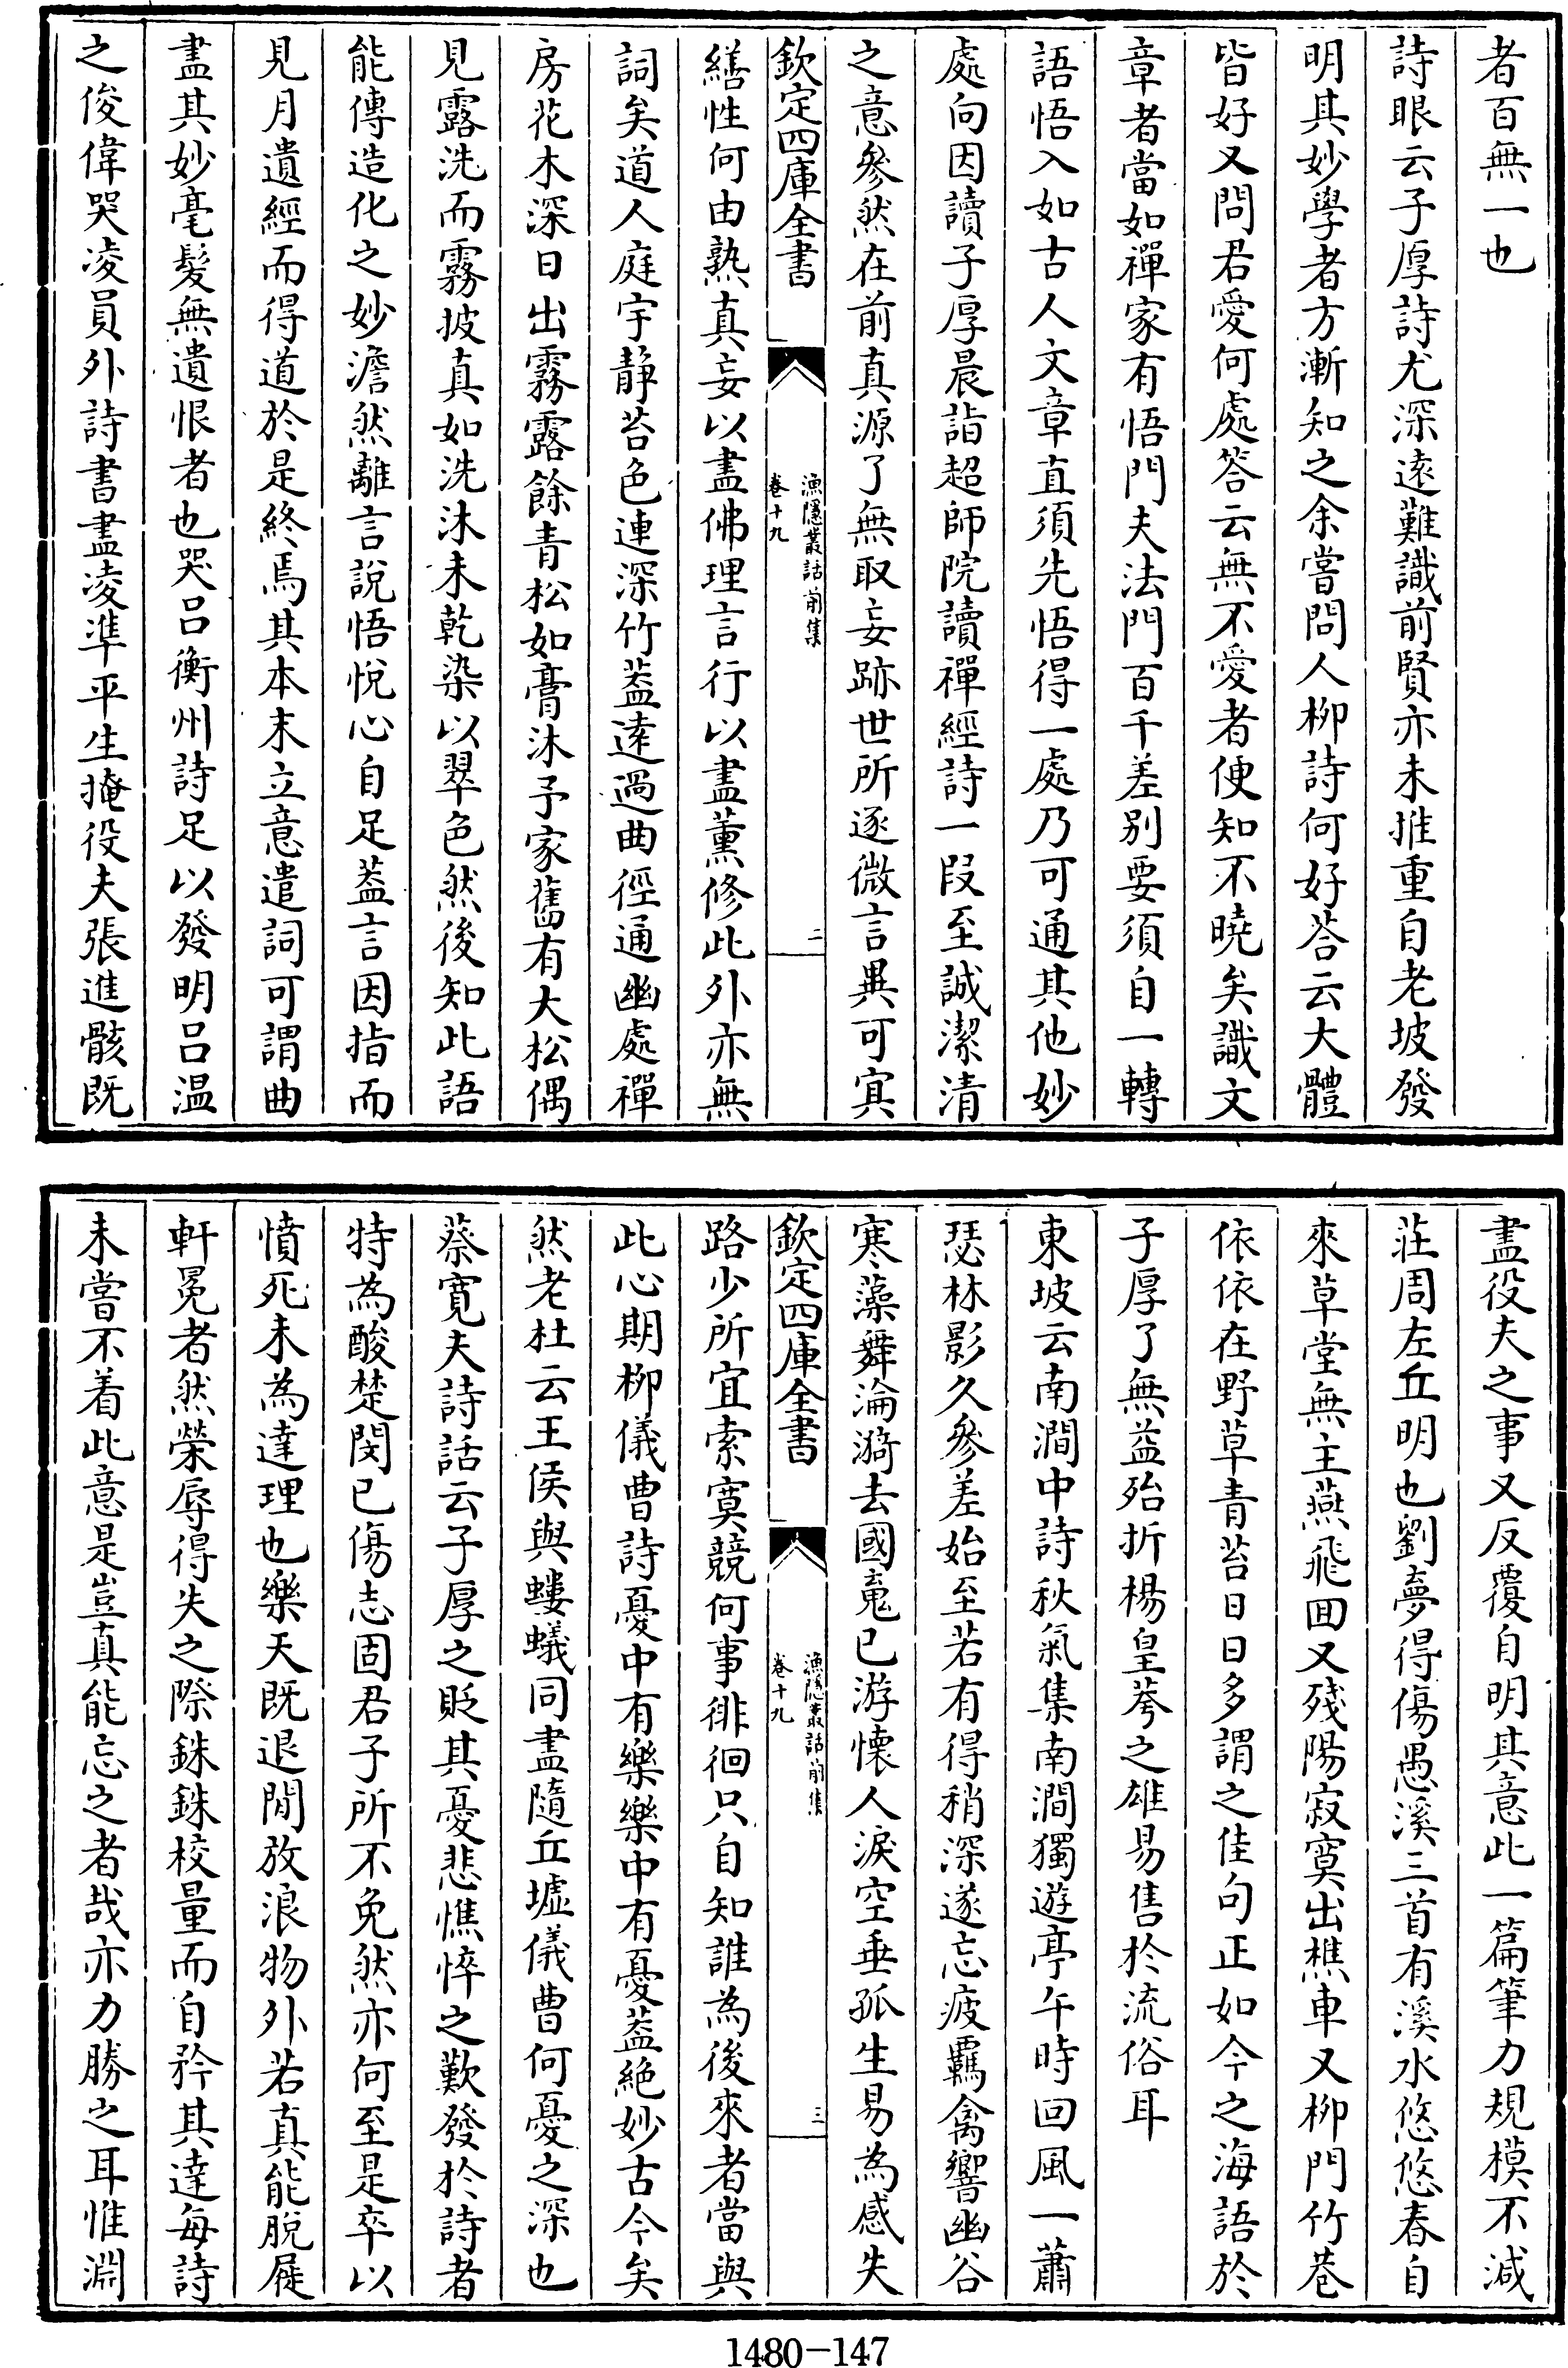 者百無一也
詩眼云子厚詩尤深遠難識前賢亦未推重自老坡發
明其妙學者方漸知之余嘗問人柳詩何好荅云大體
皆好又問君愛何處答云無不愛者便知不曉矣識文
章者當如禪家有悟門夫法門百千差别要須自一轉
語悟入如古人文章直須先悟得一處乃可通其他妙
處向因讀子厚晨詣超師院讀禪經詩一段至誠潔清
之意參然在前真源了無取妄跡世所逐微言異可㝠
欽定四庫全書
漁隱叢話前集
卷十九
二
繕性何由熟真妄以盡佛理言行以盡薰修此外亦無
詞矣道人庭宇静苔色連深竹葢逺過曲徑通幽處禪
房花木深日出霧露餘青松如膏沐予家舊有大松偶
見露洗而霧披真如洗沐未乾染以翠色然後知此語
能傳造化之妙澹然離言說悟悅心自足葢言因指而
見月遺經而得道於是終焉其本末立意遣詞可謂曲
盡其妙毫髮無遺恨者也哭吕衡州詩足以發明吕温
之俊偉哭凌員外詩書盡凌準平生掩役夫張進骸既
盡役夫之事又反覆自明其意此一篇筆力規模不減
莊周左丘明也劉夢得傷愚溪三首有溪水悠悠春自
來草堂無主燕飛囬又殘陽寂寞出樵車又柳門竹巷
依依在野草青苔日日多謂之佳句正如今之海語於
子厚了無益殆折楊皇荂之雄易售於流俗耳
東坡云南澗中詩秋氣集南澗獨遊亭午時回風一蕭
瑟林影久參差始至若有得稍深遂忘疲羈禽響幽谷
寒藻舞淪漪去國䰟已游懷人淚空垂孤生易為感失
欽定四庫全書
漁隱叢話前集
卷十九
三
路少所宜索寞競何事徘徊只自知誰為後來者當與
此心期柳儀曹詩憂中有樂樂中有憂葢絶妙古今矣
然老杜云王侯與螻蟻同盡隨丘墟儀曹何憂之深也
蔡寛夫詩話云子厚之貶其憂悲憔悴之歎發於詩者
特為酸楚閔已傷志固君子所不免然亦何至是卒以
憤死未為達理也樂天既退閒放浪物外若真能脫屣
軒冕者然榮辱得失之際銖銖校量而自矜其達每詩
未嘗不着此意是豈真能忘之者哉亦力勝之耳惟淵
1480-147